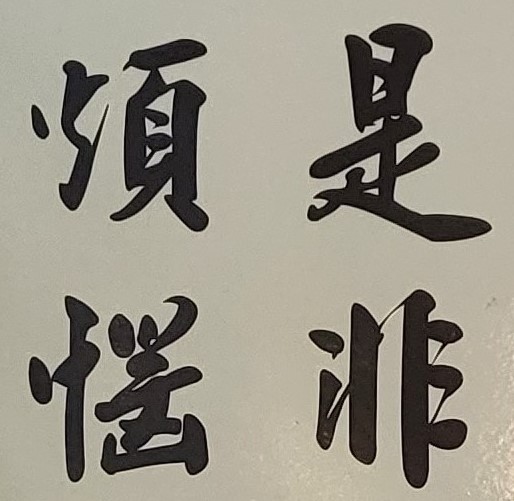 是非
煩惱